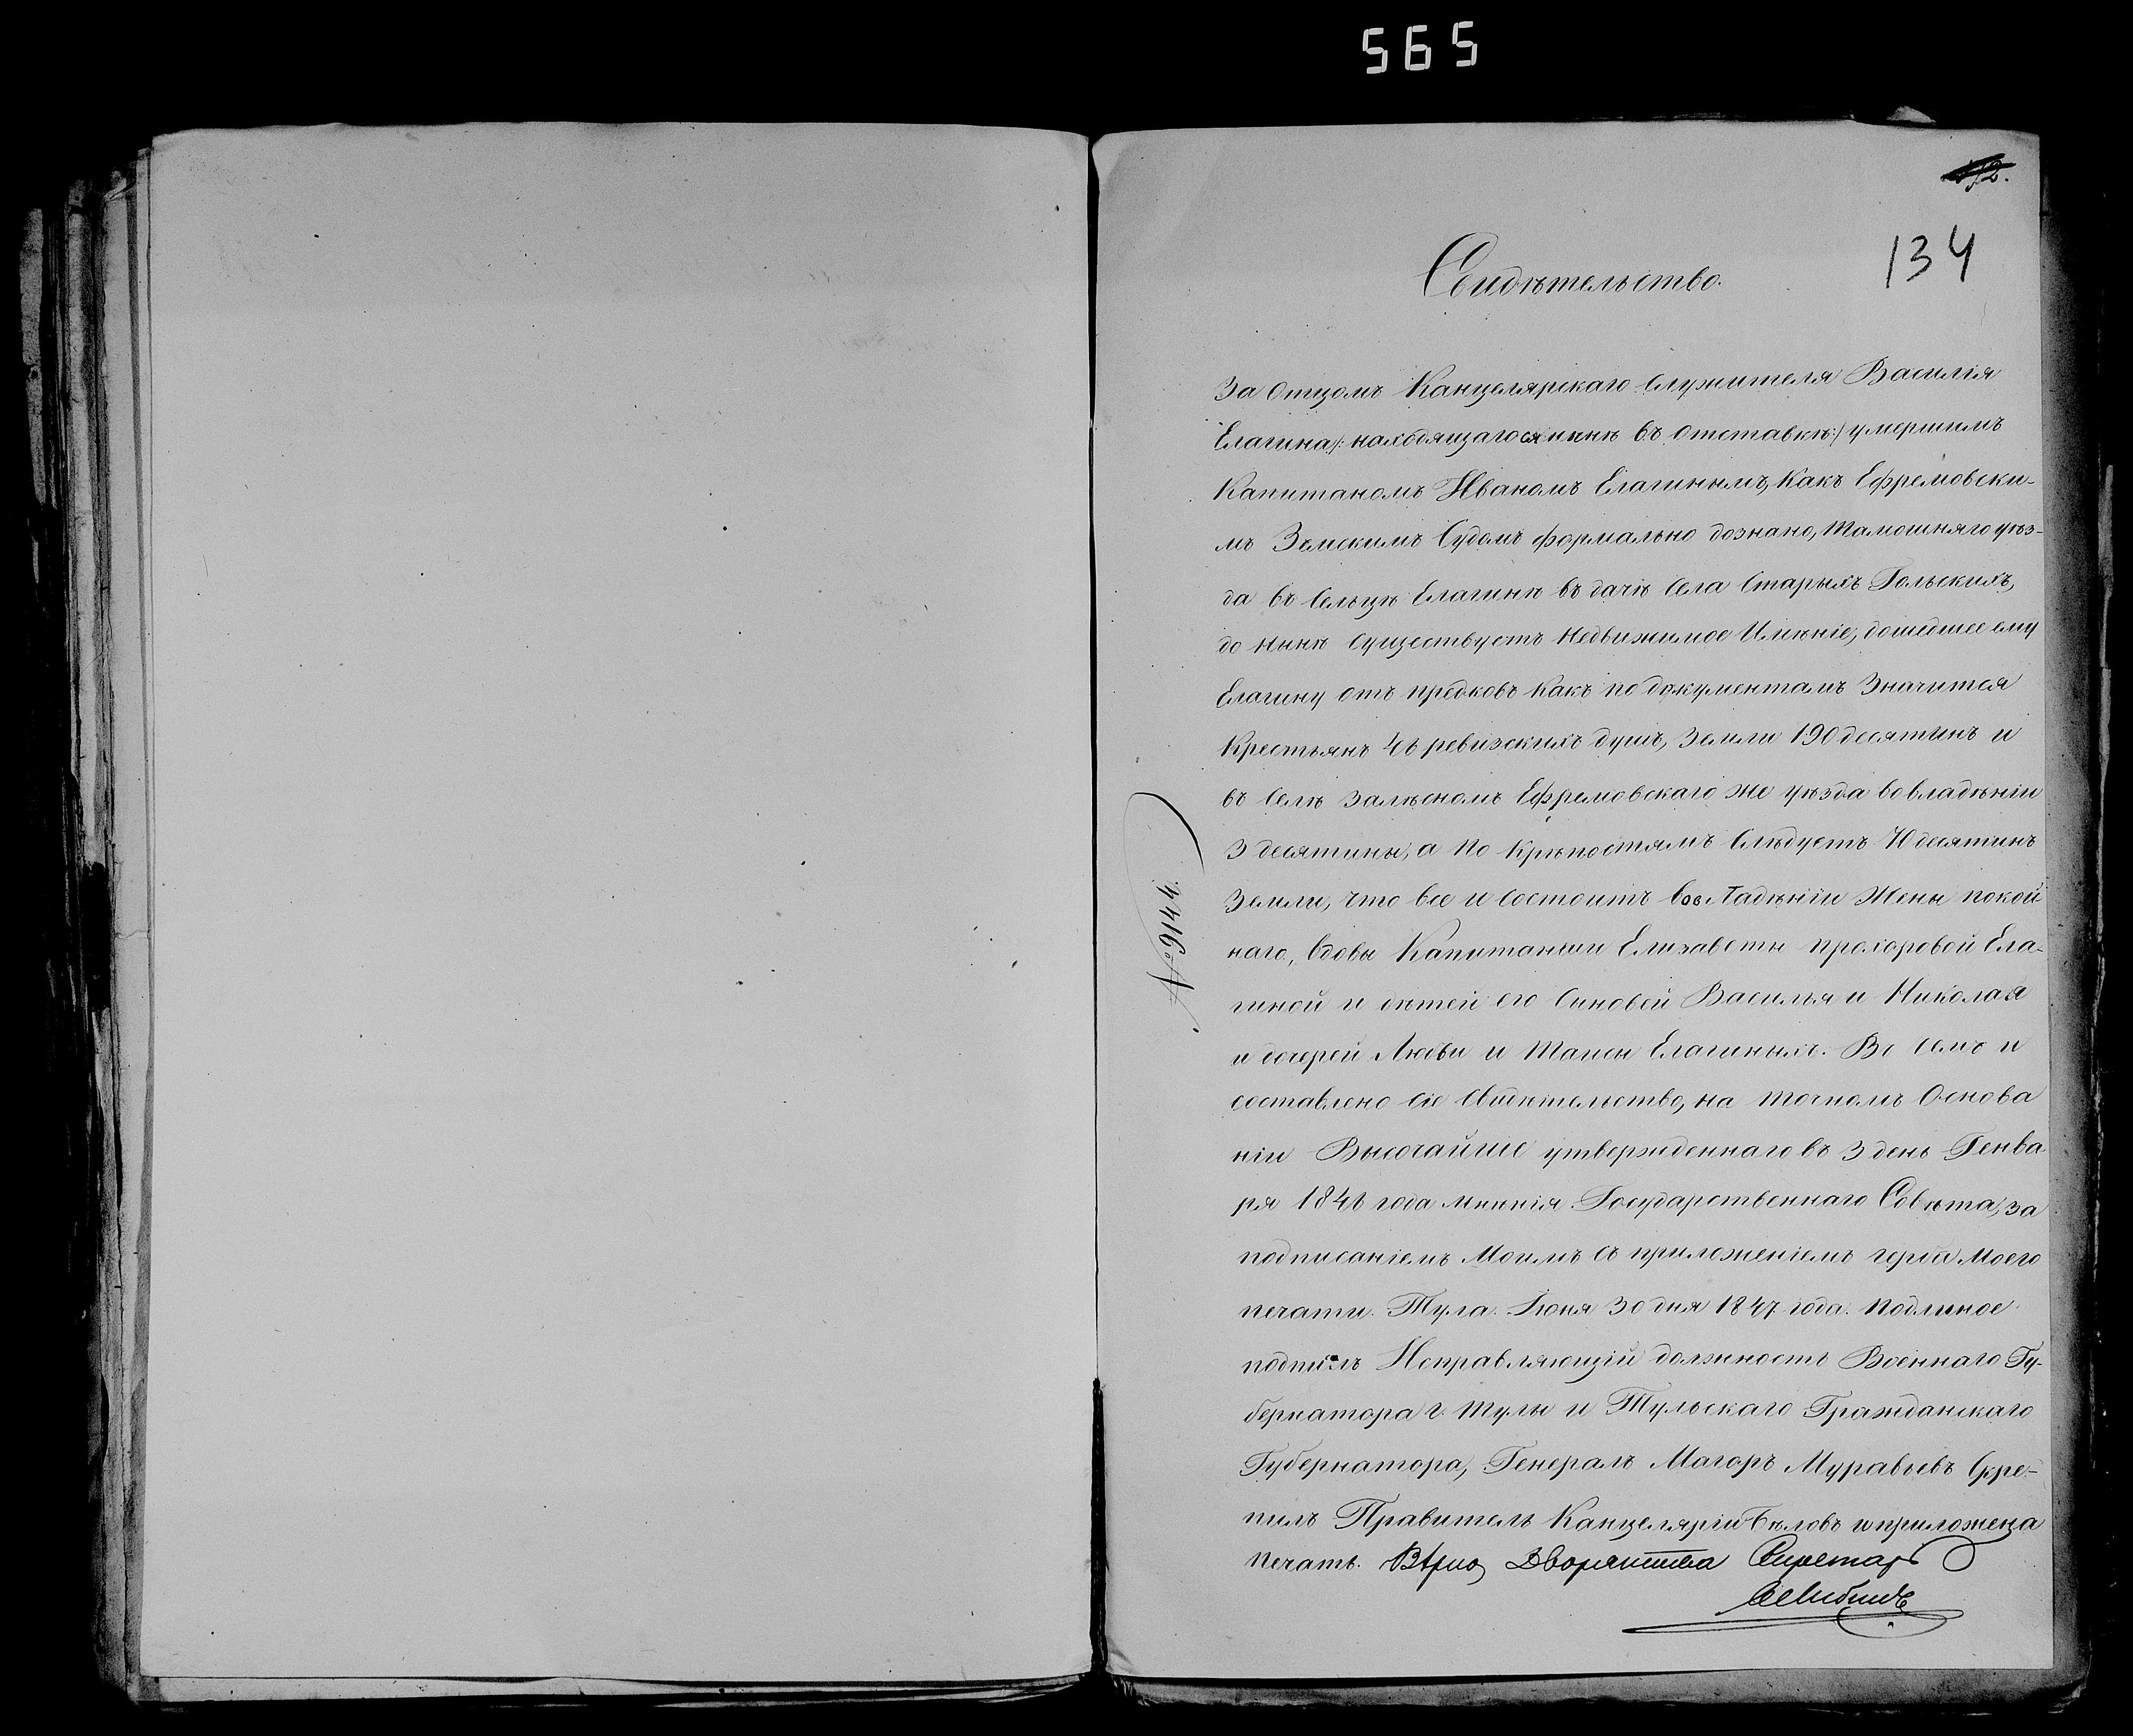 565
134
Свидѣтельство.
За Отцомъ Канцелярскаго Служителя Василія
Елагина /: находящагося нынѣ въ Отставкѣ:/ умершимъ
Капитаномъ Иваномъ Елагинымъ, Какъ Ефремовски-
мъ Земскимъ Судомъ формально дознано, тамошняго уѣз-
да въ Сельцѣ Елагинѣ въ дачѣ Села Старыхъ Гольскихъ,
до нынѣ Существуетъ Недвижимое Имѣніе, дошедшее ему
Елагину отъ предковъ Какъ по документамъ Значится
Крестьянъ ревизскихъ душъ, Земли 190 десятинъ и
въ Селѣ Залѣсномъ Ефремовскаго же уѣзда во владѣніи
3 десятины, а по Крѣпостямъ Слѣдуетъ десятинъ
Земли, что все и состоитъ во владѣніи Жены покой-
наго, Вдовы Капитанши Елизаветы прохоровой Ела-
гиной и дѣтей его Сыновей Василья и Николая
и дочерей Любви и Елагиныхъ. Въ семъ и
составлено сіе Свидѣтельство, на точномъ Основа
ніи Высочайше утвержденнаго въ 3 день Генва
ря года мнѣнія Государственнаго Совѣта, за
подписаніемъ Моимъ съ приложеніемъ герба Моего
печати. Тула. Іюня 30 дня 1847 года. Подлиное
Исправляющій должность Военнаго Гу-
бернатора г. Тулы и Тульскаго Гражданскаго
Губернатора, Генералъ Маіоръ Муравьевъ Скрѣ-
пилъ Правитель Канцеляріи Бѣловъ и приложена
печать. Вѣрно, Дворянства Секретарь
№ 9144.